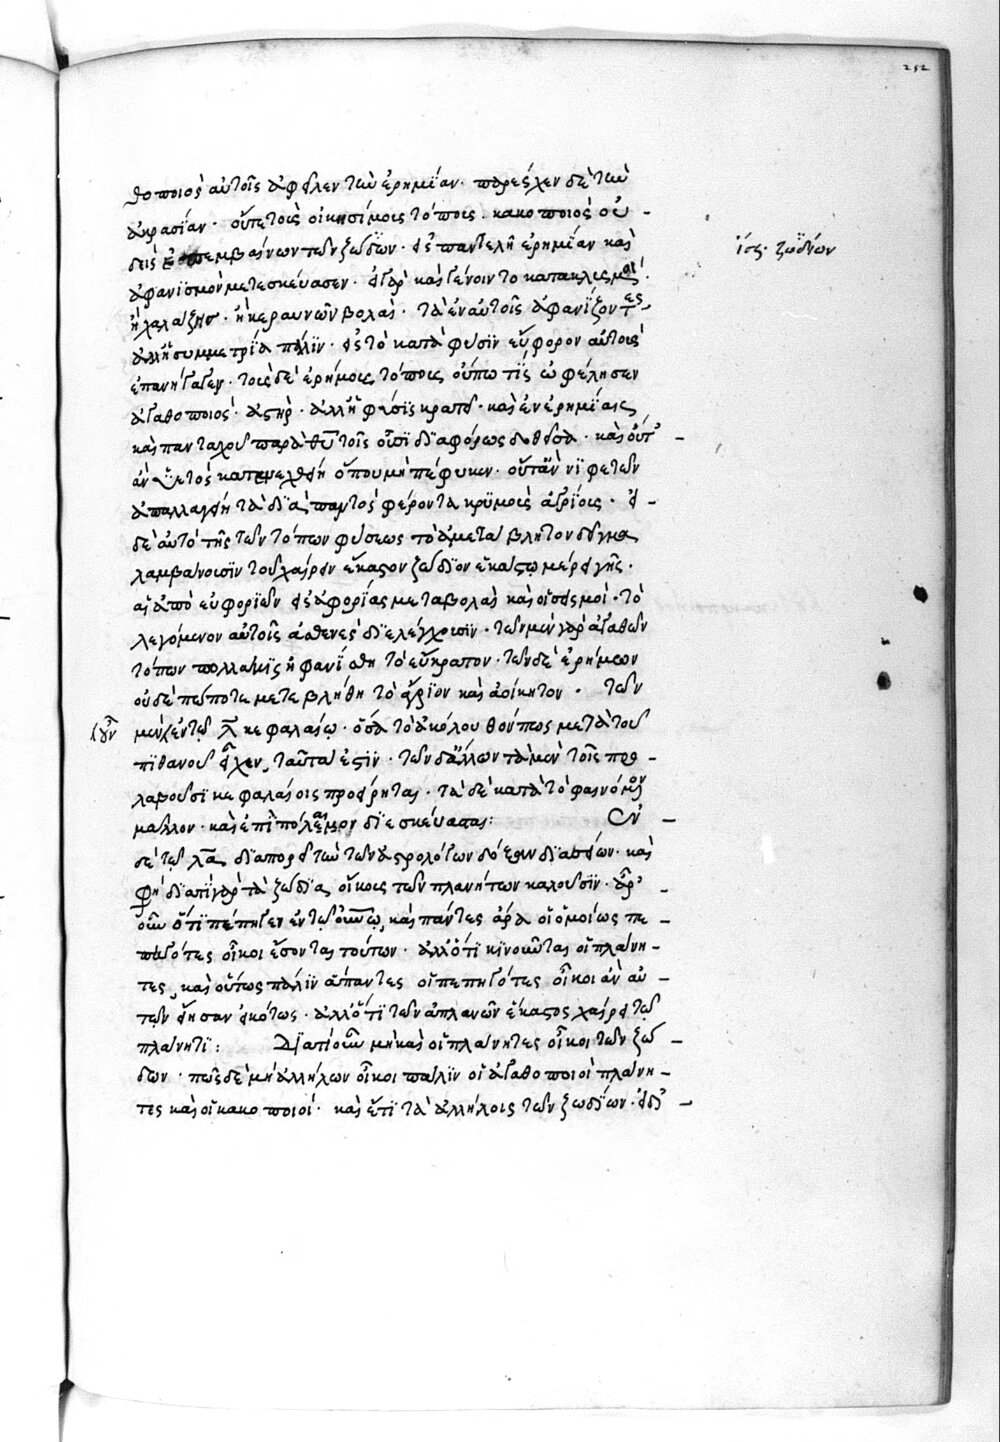 252
θοποιὸς αὐτοῖς ἀφεῖλεν τὴν ἐρημίαν· παρέσχεν δὲ τὴν
εὐκρασίαν· οὔτε τοῖς οἰκησίμοις τόποις κακοποιὸς οὐ-
δεὶς ἐπεμβαίνων τῶν ζωδίων· εἰς παντελῆ ἐρημίαν καὶ
ἴσως· ζωδίων
ἀφανισμὸν μετεσκεύασεν· εἰ γὰρ καὶ γένοιντο κατακλυσμοὶ
ἢ χάλαζαι· ἢ κεραυνῶν βολαὶ· τὰ ἐν αὐτοῖς ἀφανίζοντες
ἀλλ' ἡ συμμετρία πάλιν· εἰς τὸ κατὰ φύσιν εὔφορον αὐτοὺς
ἐπανήγαγεν· τοῖς δὲ ἐρήμοις τόποις οὔπω τις ὠφέλησεν
ἀγαθοποιὸς ἀστὴρ· ἀλλ' ἡ φύσις κρατεῖ· καὶ ἐν ἐρημίαις
καὶ πανταχοῦ παρὰ θεοῦ τοῖς οὖσι διαφόρως δοθεῖσα· καὶ οὔτ' -
ἂν ὑετὸς κατενεχθείη ὅπου μὴ πέφυκεν· οὔτ' ἂν νιφετῶν
ἀπαλλαγείη τὰ διαπαντὸς φέροντα κρυμοὺς ἀγρίους· εἰ -
δὲ αὐτὸ τῆς τῶν τόπων φύσεως τὸ ἀμετάβλητον δεῖγμα
λαμβάνουσιν τοῦ χαίρειν ἕκαστον ζώδιον ἑκάστῳ μέρει γῆς·
αἱ ἀπὸ εὐφοριῶν εἰς ἀφορίας μεταβολαὶ καὶ οἱ σεισμοὶ· τὸ
λεγόμενον αὐτοῖς ἀσθενὲς διελέγχουσιν· τῶν μὲν γὰρ ἀγαθῶν
τόπων πολλάκις ἠφανίσθη τὸ εὔκρατον· τῶν δὲ ἐρήμων
οὐδεπώποτε μετεβλήθη τὸ ἄγριον καὶ ἀοίκητον· τῶν
μὲν ἐν τῷ λ κεφαλαίῳ· ὅσα τὸ ἀκόλουθον πως μετὰ τοῦ
πιθανοῦ εἶχεν, ταῦτά ἐστιν· τῶν δ' ἄλλων τὰ μὲν τοῖς προ-
λαβοῦσι κεφαλαίοις προείρηται· τὰ δὲ κατὰ τὸ φαινόμενον
μᾶλλον· καὶ ἐπιπόλαιον διεσκεύασται: Ἐν -
δὲ τῷ λα διαπορεῖ τὴν τῶν ἀστρολόγων δόξαν διασύρων· καὶ
φησὶ διατί γὰρ τὰ ζώδια οἴκους τῶν πλανήτων καλοῦσιν· ἆρ' -
οὖν ὅτι πέπηγεν ἐν τῷ οὐρανῷ, καὶ πάντες ἄρα οἱ ὁμοίως πε-
πηγότες οἶκοι ἔσονται τούτων· ἀλλ' ὅτι κινοῦνται οἱ πλάνη-
τες, καὶ οὕτως πάλιν ἅπαντες οἱ πεπηγότες οἶκοι ἂν αὐ-
τῶν ἦσαν εἰκότως· ἀλλ' ὅτι τῶν ἀπλανῶν ἕκαστος χαίρει τῷ
πλάνητι: Διατί οὖν μὴ καὶ οἱ πλάνητες οἶκοι τῶν ζω-
δίων· πῶς δὲ μὴ ἀλλήλων οἶκοι πάλιν οἱ ἀγαθοποιοὶ πλάνη-
τες καὶ οἱ κακοποιοί· καὶ ἔτι τὰ ἀλλήλοις τῶν ζωδίων· εἰ δ' -